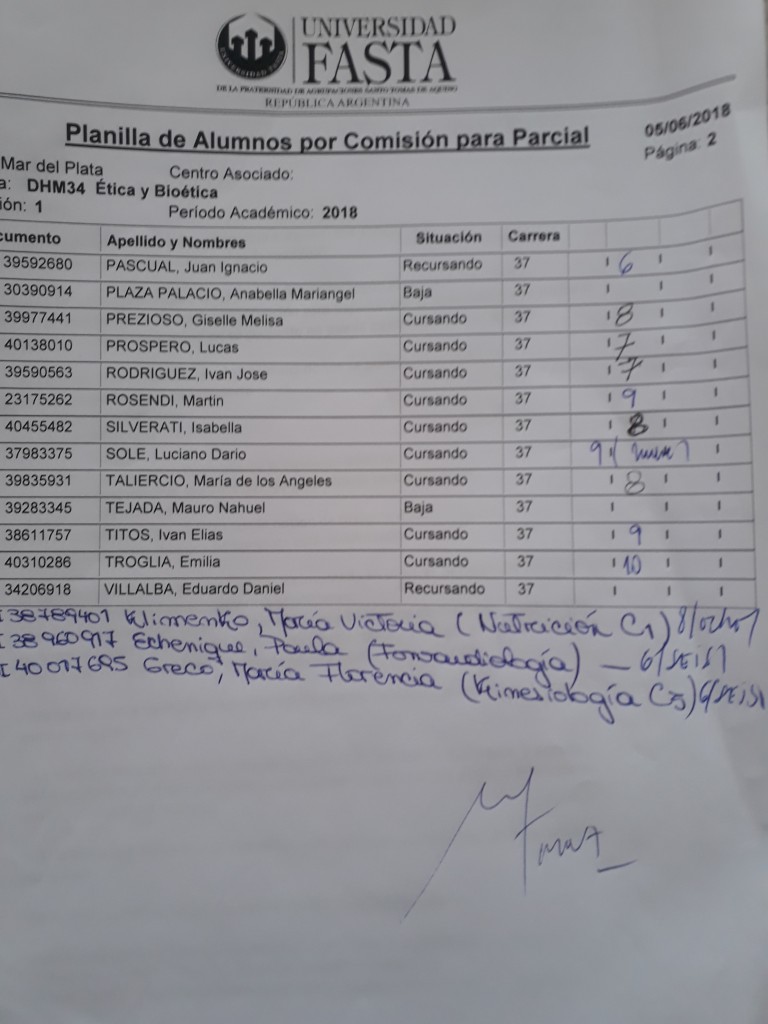 UNIVERSIDAD
FASTA
DE LA FRATERNIDAD DE AGRUPACIONES SANTO TOMAS DE AQUINO
REPÚBLICA ARGENTINA
Planilla de Alumnos por Comisión para Parcial
05/06/2018
Página: 2
Mar del Plata Centro Asociado:
a: DHM34 Ética y Bioética
ión: 1 Período Académico: 2018
cumento Apellido y Nombres Situación Carrera
39592680 PASCUAL, Juan Ignacio Recursando 37 6
30390914 PLAZA PALACIO, Anabella Mariangel Baja 37
39977441 PREZIOSO, Giselle Melisa Cursando 37 8
40138010 PROSPERO, Lucas Cursando 37 7
39590563 RODRIGUEZ, Ivan Jose Cursando 37 7
23175262 ROSENDI, Martin Cursando 37 9
40455482 SILVERATI, Isabella Cursando 37 8
37983375 SOLE, Luciano Dario Cursando 37 9
39835931 TALIERCIO, María de los Angeles Cursando 37 8
39283345 TEJADA, Mauro Nahuel Baja 37
38611757 TITOS, Ivan Elias Cursando 37 9
40310286 TROGLIA, Emilia Cursando 37 10
34206918 VILLALBA, Eduardo Daniel Recursando 37
38789401 Klimenko, María Victoria (Nutrición C1) 8/ocho/
38960917 Echenique, Paula (Fonoaudiología) — 6/SEIS/
40017695 Greco, María Florencia (Kinesiología C5) 6/SEIS/